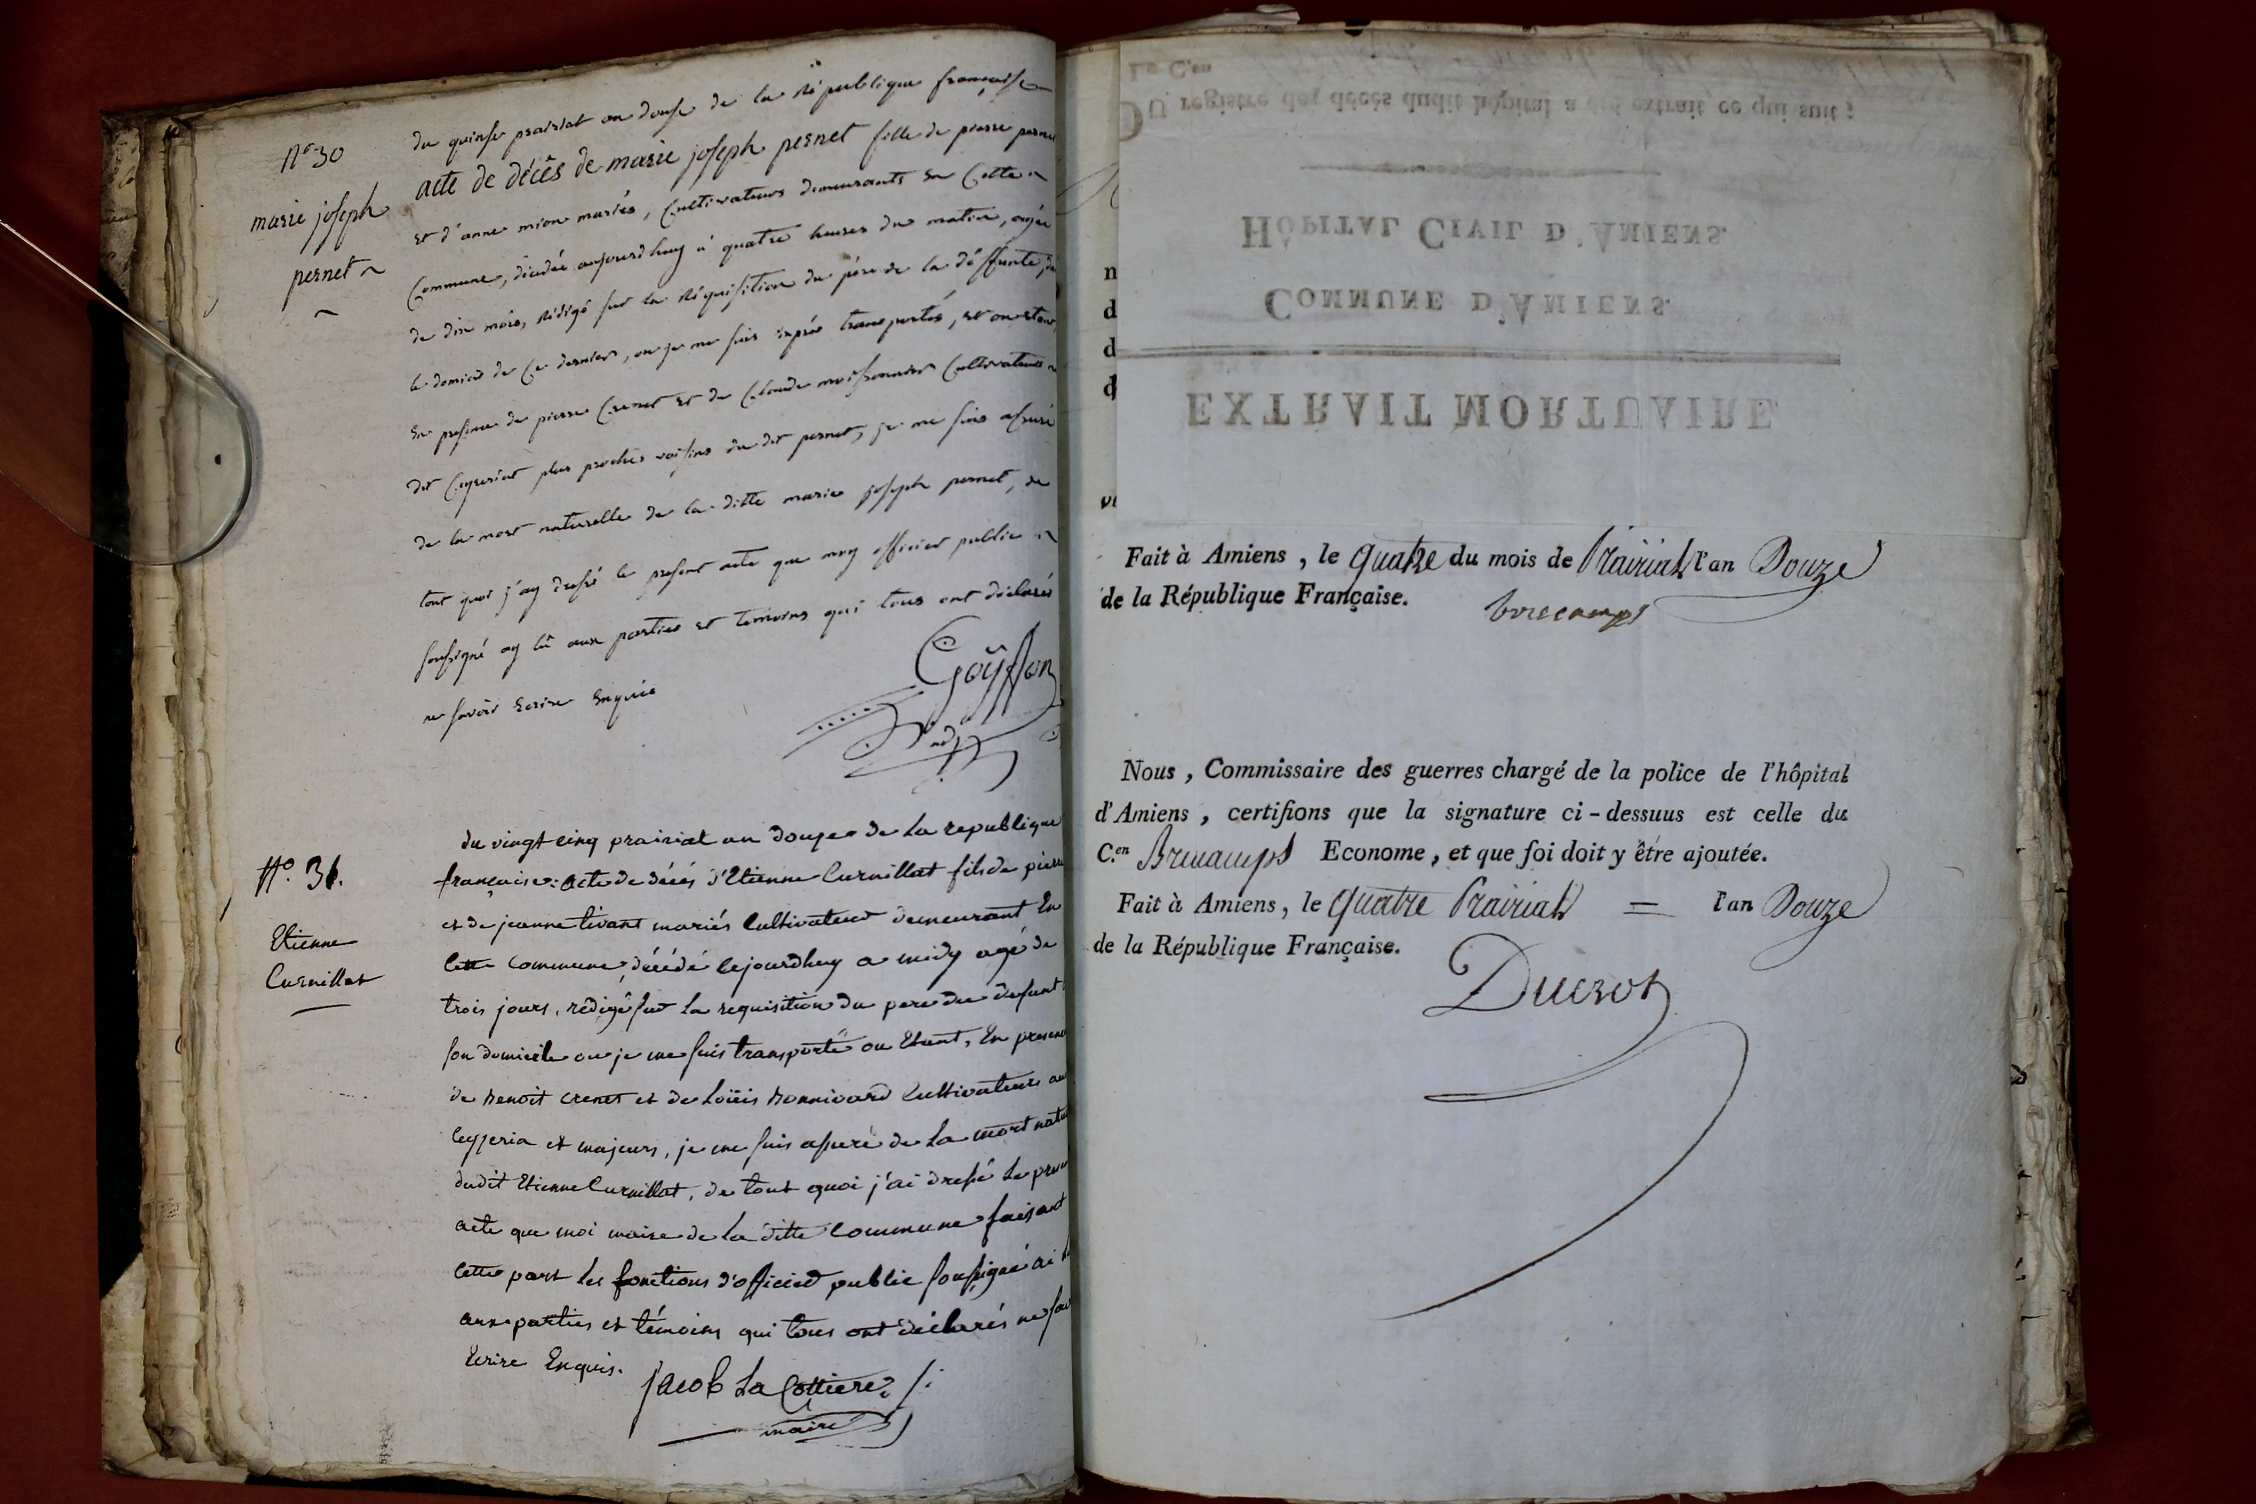 N° 30
marie joseph
pernet
du quinse prairial an douse de la république française
acte de décês de marie joseph pernet fille de pierre pernet
et d'anne mion mariés, cultivateurs demeurants en cette
commune, décédée aujourd'huy à quatre heures du matin, agée
de dix mois, rédigé sur la réquisition du père de la déffunte,
le domicile de ce dernier, ou je me suis exprès transportés, et ou etant,
en presence de pierre Crenet et de Claude moissonnier cultivateurs
dit Ceyseriat plus proches voisins du dit pernet, je me suis assuré
de la mort naturelle de la ditte marie joseph pernet, de
tout quoi j'ay dressé le present acte que moy officier public
soussigné ay lû aux parties et temoins qui tous ont déclarés
ne savoir ecrire enquis
Goÿffon
N° 31.
Etienne
Curnillat
du vingt cinq prairial an douze de la republique
française: acte de décés d'Etienne Curnillat fils de pierre
et de jeanne tivant mariés cultivateur demeurant En
cette commune, décédé cejourdhuy a midy agé de
trois jours, rédigé sur la requisition du pere du defunt
son domicile ou je me suis transporté ou Etant, En presence
de Benoit crenet et de Loüis Bonnivard cultivateurs au
ceyzeria et majeurs, je me suis assuré de la mort natu
dudit Etienne Curnillat, de tout quoi j'ai dressé le presen
acte que moi maire de la ditte commune faisant
cette part les fonctions d'officier public soussigné ai
aux parties et témoins qui tous ont déclarés ne sav
Ecrire Enquis.
Jacob La Cottiere
maire
Le C.en
DU registre des décès dudit hôpital a été extrait ce qui suit ;
HÔPITAL CIVIL D'AMIENS.
COMMUNE D'AMIENS.
EXTRAIT MORTUAIRE
n
d
d
d
Fait à Amiens, le quatre du mois de Prairial l'an Douze
de la République Française.
Brucamps
Nous, Commissaire des guerres chargé de la police de l'hôpital
d'Amiens, certifions que la signature ci-dessuus est celle du
C.en Brucamps Econome, et que foi doit y être ajoutée.
Fait à Amiens, le quatre Prairial = l'an Douze
de la République Française.
Ducrot